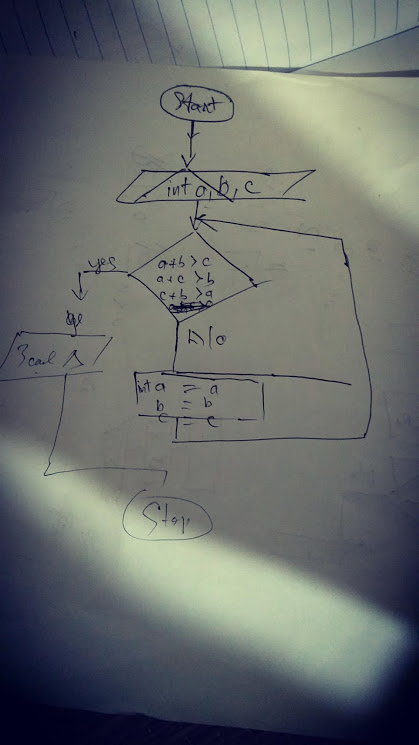 Start
int a, b, c
a+b>c
a+c>b
c+b>a
yes
No
int a = a
b = b
c = c
Stop